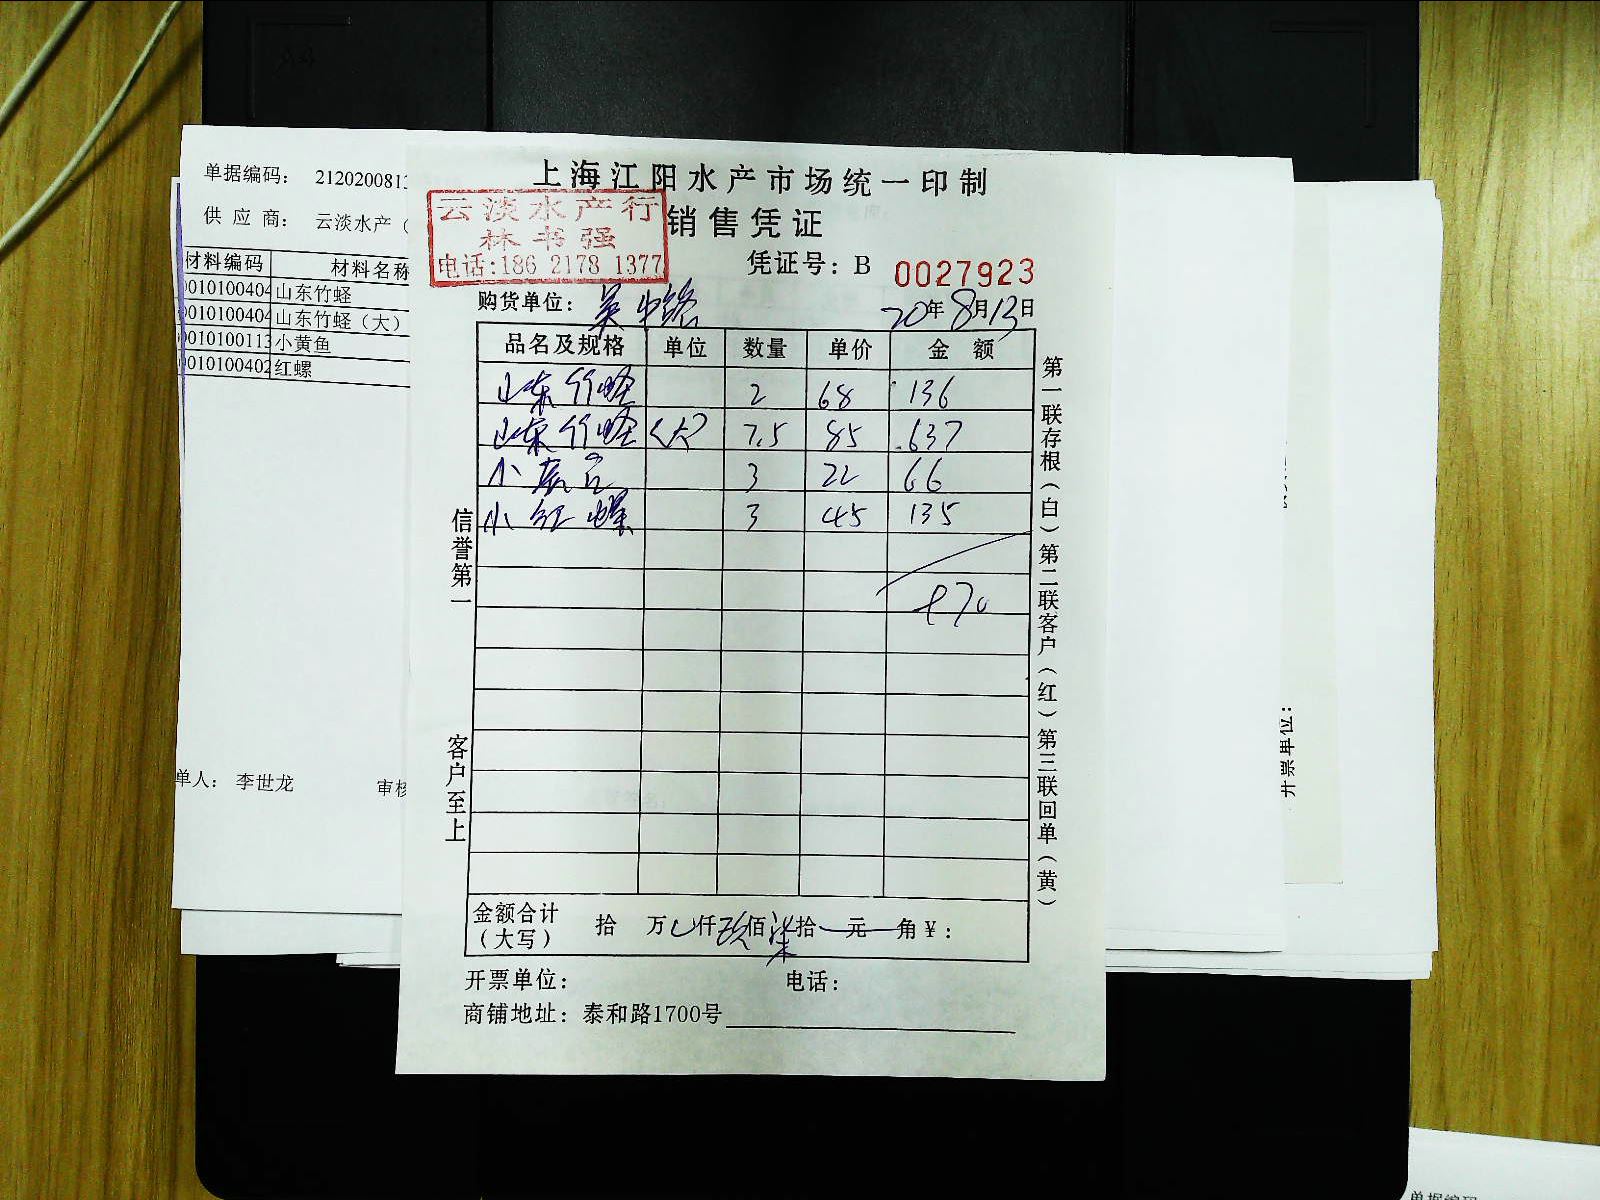 单据编码： 212020081
供 应 商： 云淡水产（
材料编码 材料名称
0010100404 山东竹蛏
0010100404 山东竹蛏（大）
0010100113 小黄鱼
0010100402 红螺
单人： 李世龙 审核
上海江阳水产市场统一印制
销售凭证
云淡水产行
林书强
电话:186 2178 1377
凭证号：B 0027923
购货单位：吴中路 20年8月13日
品名及规格 单位 数量 单价 金 额
山东竹蛏 2 68 136
山东竹蛏 (大) 7.5 85 637
小黄鱼 3 22 66
小红螺 3 45 135
970
金额合计（大写） 拾 万 仟玖佰柒拾 元 角￥：
开票单位： 电话：
商铺地址：泰和路1700号
信誉第一
客户至上
第一联存根（白）第二联客户（红）第三联回单（黄）
开票单位：